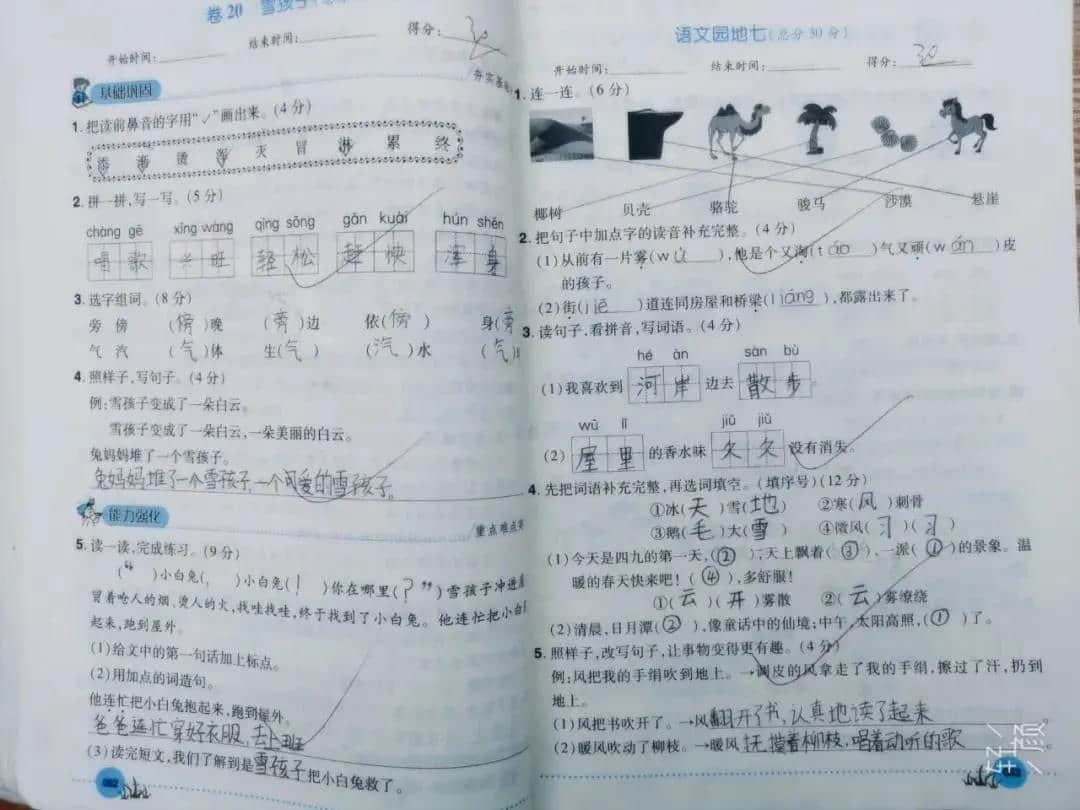 卷20 雪孩子
开始时间: 结束时间: 得分: 30
夯实基
基础巩固
1.把读前鼻音的字用“✓”画出来。(4分)
添 渐 烫 浑 灭 冒 淋 累 终
2.拼一拼,写一写。(5分)
chàng gē xīng wàng qīng sōng gǎn kuài hún shēn
唱歌 兴旺 轻松 赶快 浑身
3.选字组词。(8分)
旁 傍 (傍)晚 (旁)边 依(傍) 身(旁
气 汽 (气)体 生(气) (汽)水 (气
4.照样子,写句子。(4分)
例:雪孩子变成了一朵白云。
雪孩子变成了一朵白云,一朵美丽的白云。
兔妈妈堆了一个雪孩子。
兔妈妈堆了一个雪孩子,一个可爱的雪孩子。
能力强化
重点难点突
5.读一读,完成练习。(9分)
(“ )小白兔(, )小白兔(! )你在哪里(?”)雪孩子冲进
冒着呛人的烟、烫人的火,找哇找哇,终于找到了小白兔。他连忙把小白
起来,跑到屋外。
(1)给文中的第一句话加上标点。
(2)用加点的词造句。
他连忙把小白兔抱起来,跑到屋外。
爸爸连忙穿好衣服,去上班
(3)读完短文,我们了解到是雪孩子把小白兔救了。
语文园地七(总分30分)
开始时间: 结束时间: 得分: 30
1.连一连。(6分)
椰树 贝壳 骆驼 骏马 沙漠 悬崖
2.把句子中加点字的读音补充完整。(4分)
(1)从前有一片雾(wù),他是个又淘(táo)气又顽(wán)皮
的孩子。
(2)街(jiē)道连同房屋和桥梁(liáng),都露出来了。
3.读句子,看拼音,写词语。(4分)
hé àn sàn bù
(1)我喜欢到 河岸 边去 散步
wū lǐ jiǔ jiǔ
(2) 屋里 的香水味 久久 没有消失。
4.先把词语补充完整,再选词填空。(填序号)(12分)
①冰(天)雪(地) ②寒(风)刺骨
③鹅(毛)大(雪) ④微风(习)(习)
(1)今天是四九的第一天,(②),天上飘着(③),一派(①)的景象。温
暖的春天快来吧!(④),多舒服!
①(云)(开)雾散 ②(云)雾缭绕
(2)清晨,日月潭(②),像童话中的仙境;中午,太阳高照,(①)了。
5.照样子,改写句子,让事物变得更有趣。(4分)
例:风把我的手绢吹到地上。→调皮的风拿走了我的手绢,擦过了汗,扔到
地上。
(1)风把书吹开了。→风翻开了书,认真地读了起来
(2)暖风吹动了柳枝。→暖风抚摸着柳枝,唱着动听的歌。